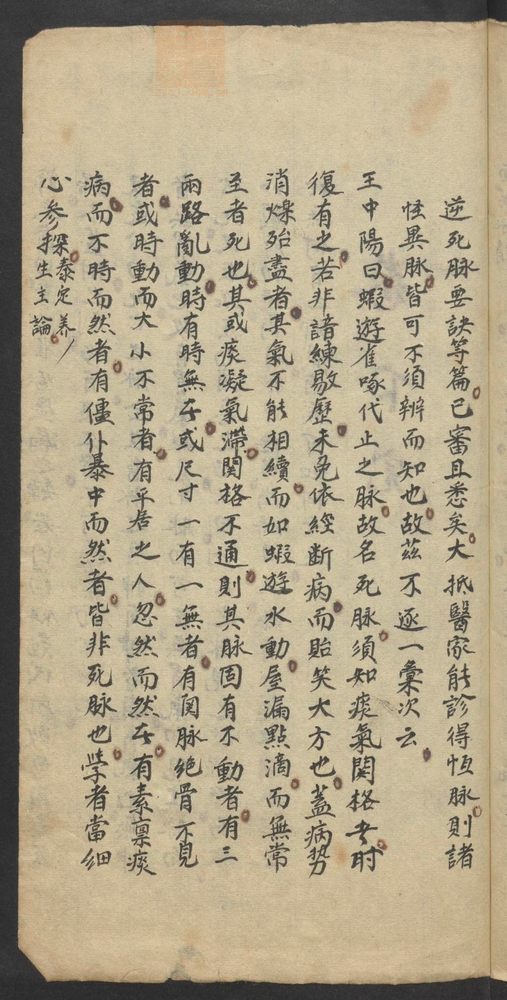 逆死脉要訣等篇已審且悉矣大抵醫家能診得恆脉則諸
怪異脉皆可不須辨而知也故茲不逐一彙次云
王中陽曰蝦遊雀啄代止之脉故名死脉須知痰氣関格者時
復有之若非諳練敭歷未免依經断病而貽笑大方也蓋病势
消爍殆盡者其氣不能相續而如蝦遊水動屋漏點滴而無常
至者死也其或痰凝氣滯関格不通則其脉固有不動者有三
兩路亂動時有時無者或尺寸一有一無者有関脉絶骨不見
者或時動而大小不常者有平居之人忽然而然者有素禀痰
病而不時而然者有僵仆暴中而然者皆非死脉也學者當細
心参探泰定養
生主論